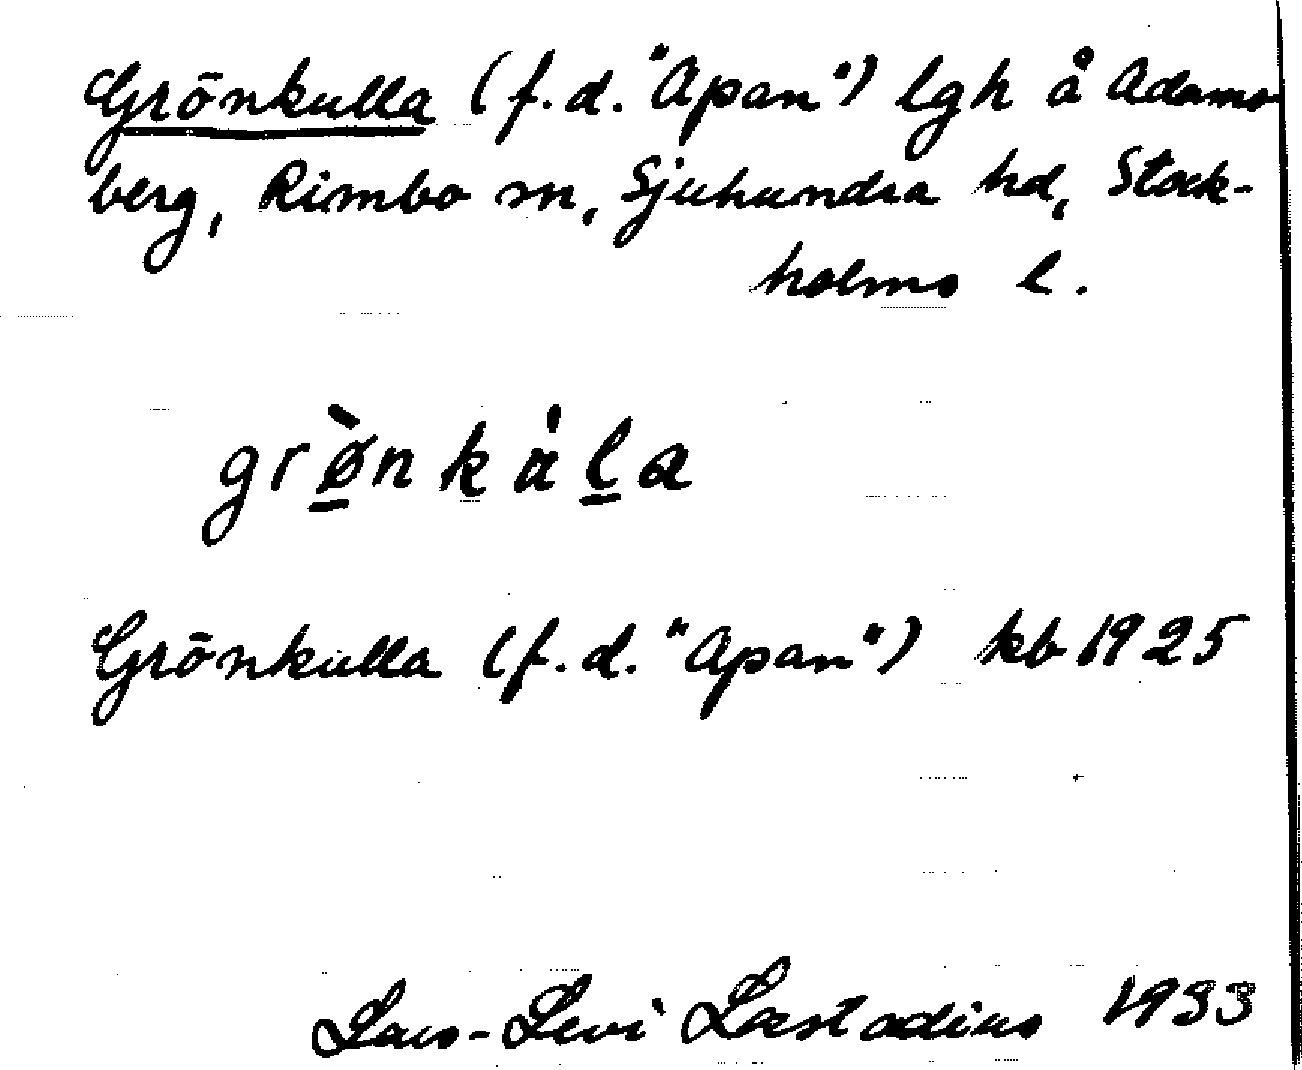 Grönkulla (f.d. "Apan") lgh å Adams-
berg, Rimbo sn, Sjuhundra hd, Stock-
holms l.
grø̀nkàla
Grönkulla (f.d. "Apan") kb 1925
Lars-Levi Læstadius 1933